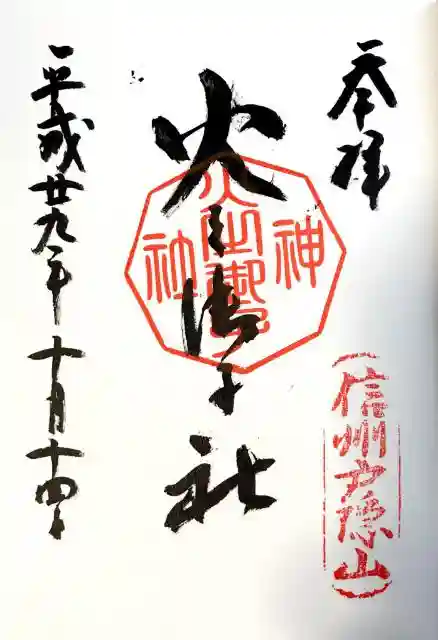 奉拝
信州戸隠山
火之御子社
神
社
平成廿九年十月十四日